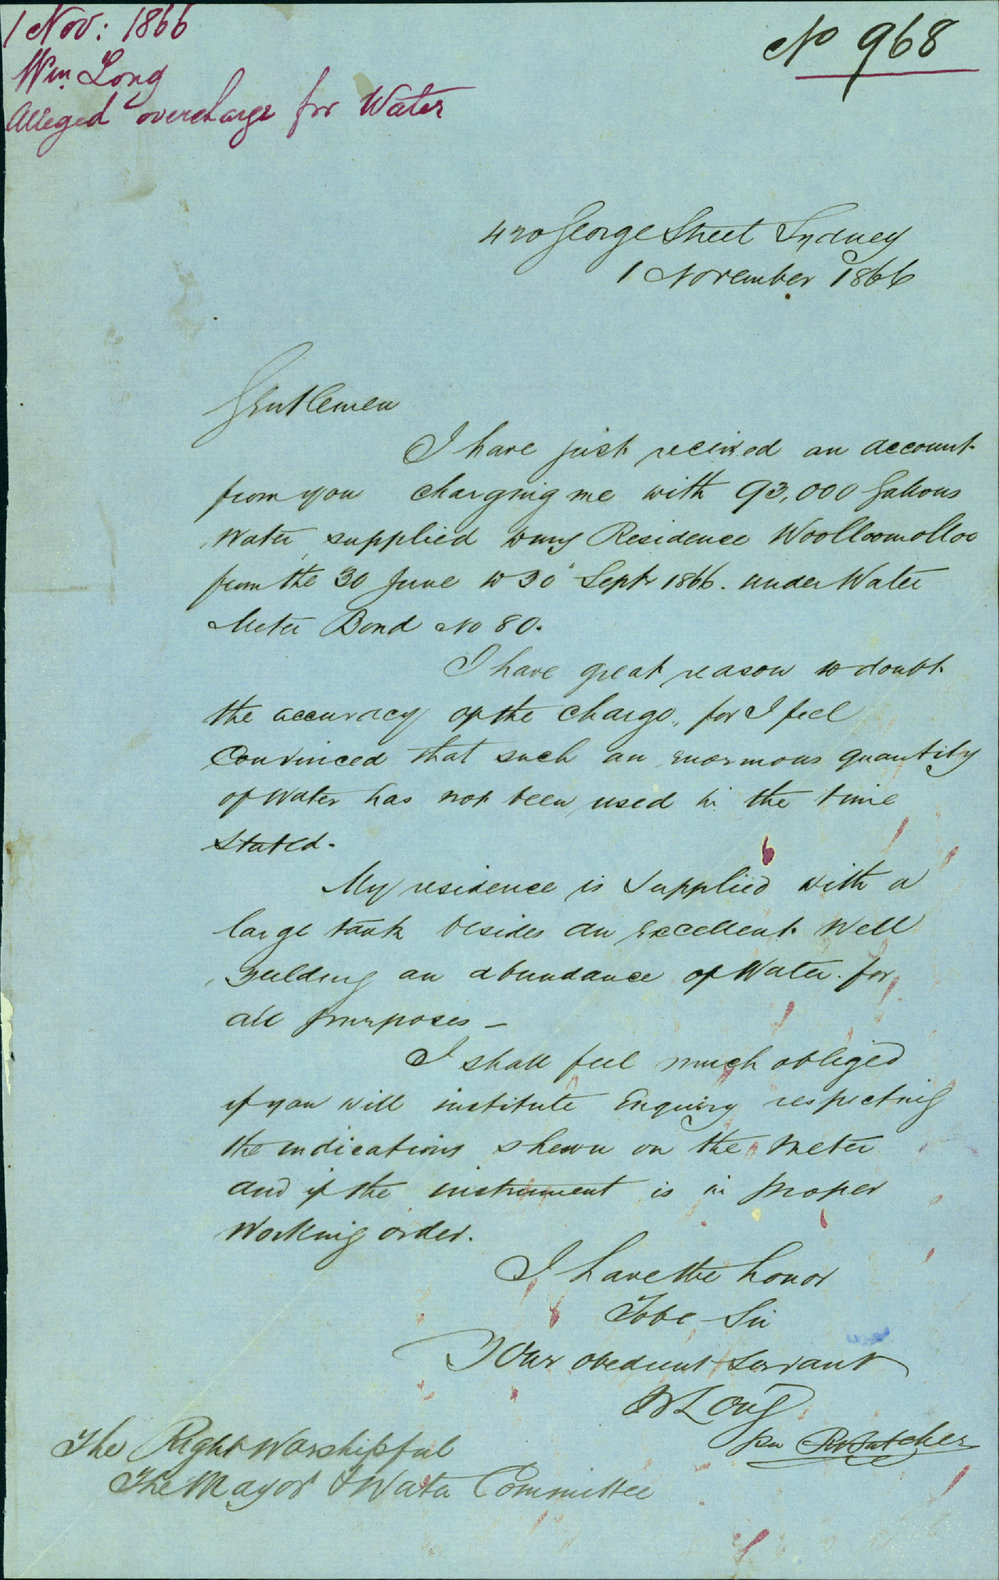 1 Nov: 1866
Wm. Long
Alleged overcharge for Water
No 968
420 George Street Sydney
1 November 1866
Gentlemen
I have just received an account
from you charging me with 93,000 Gallons
Water supplied to my Residence Woolloomolloo
from the 30 June to 30 Sept 1866. under Water
Meter Bond No 80.
I have great reason to doubt
the accuracy of the charge, for I feel
Convinced that such an enormous quantity
of Water has not been used in the time
stated.
My residence is supplied with a
large tank besides an excellent Well
yeilding an abundance of Water for
all purposes —
I shall feel much obliged
if you will institute Enquiry respecting
the indications shewn on the Meter
and if the instrument is in proper
Working order.
I have the honor
To be Sir
Your obedient servant
W Long
per R Butcher
The Right Worshipful
The Mayor & Water Committee